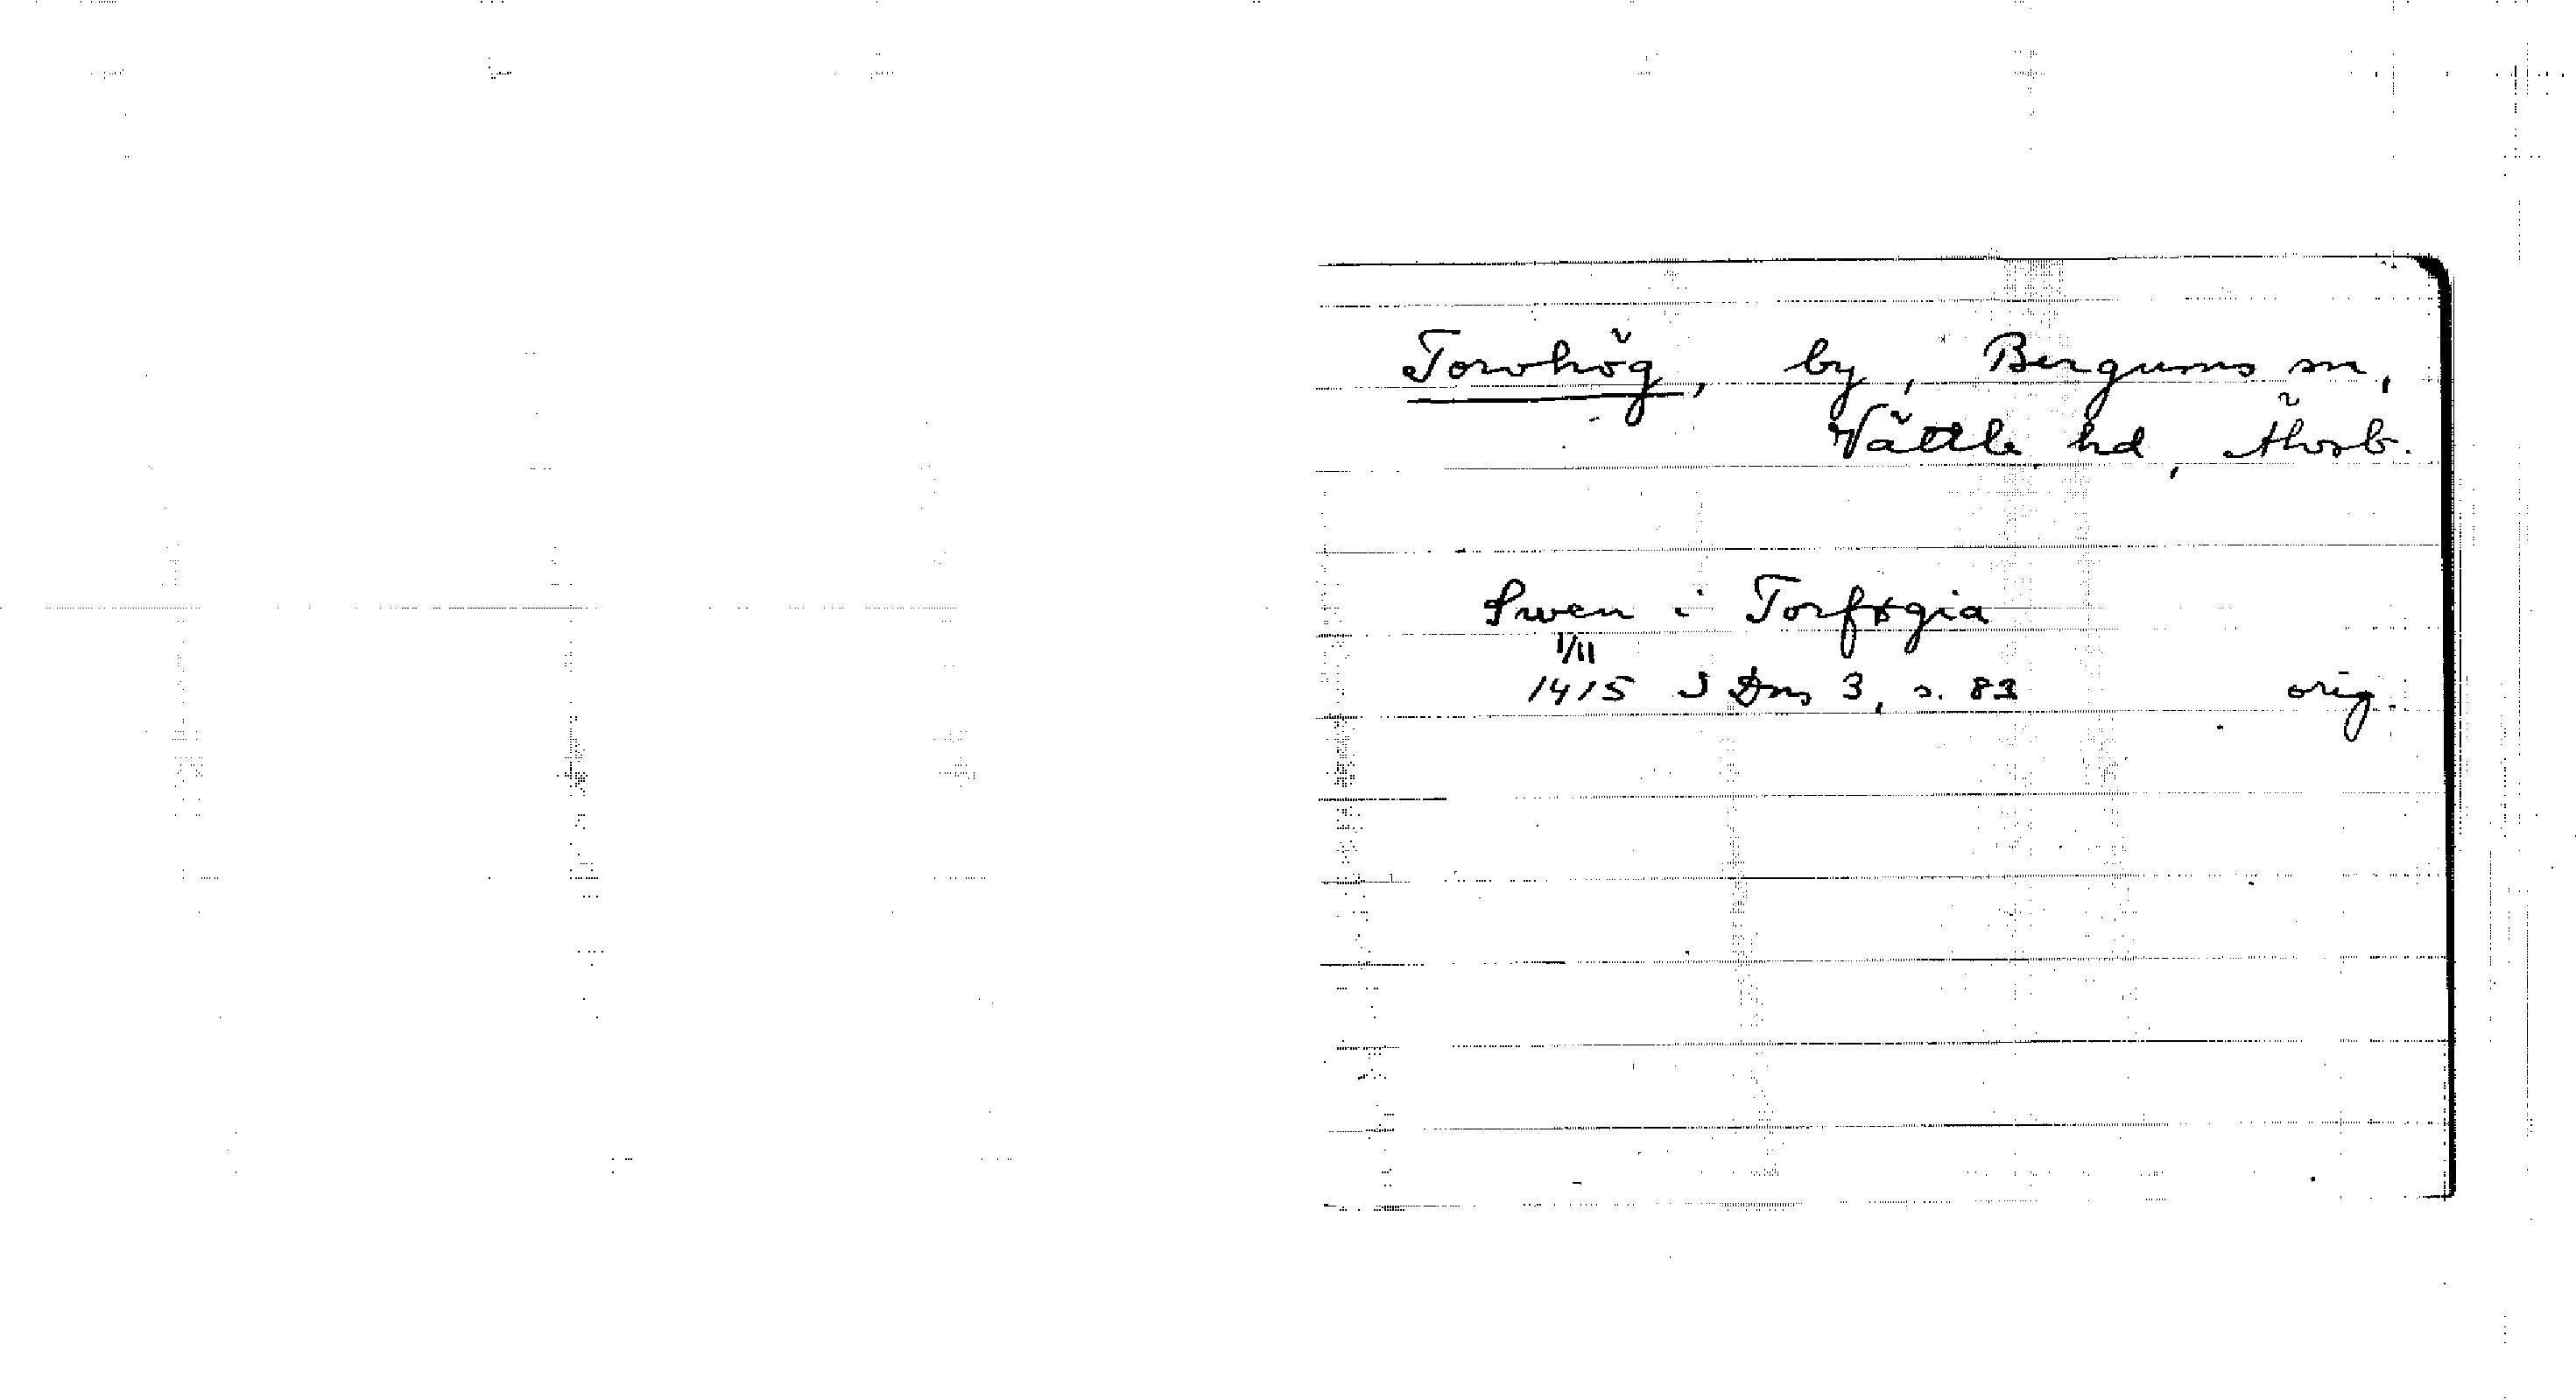 Torvhög, by, Bergums sn,
Vättle hd, Älvsb.
Swen i Torføgia
1/11
1415 SDns 3, s. 83 orig.